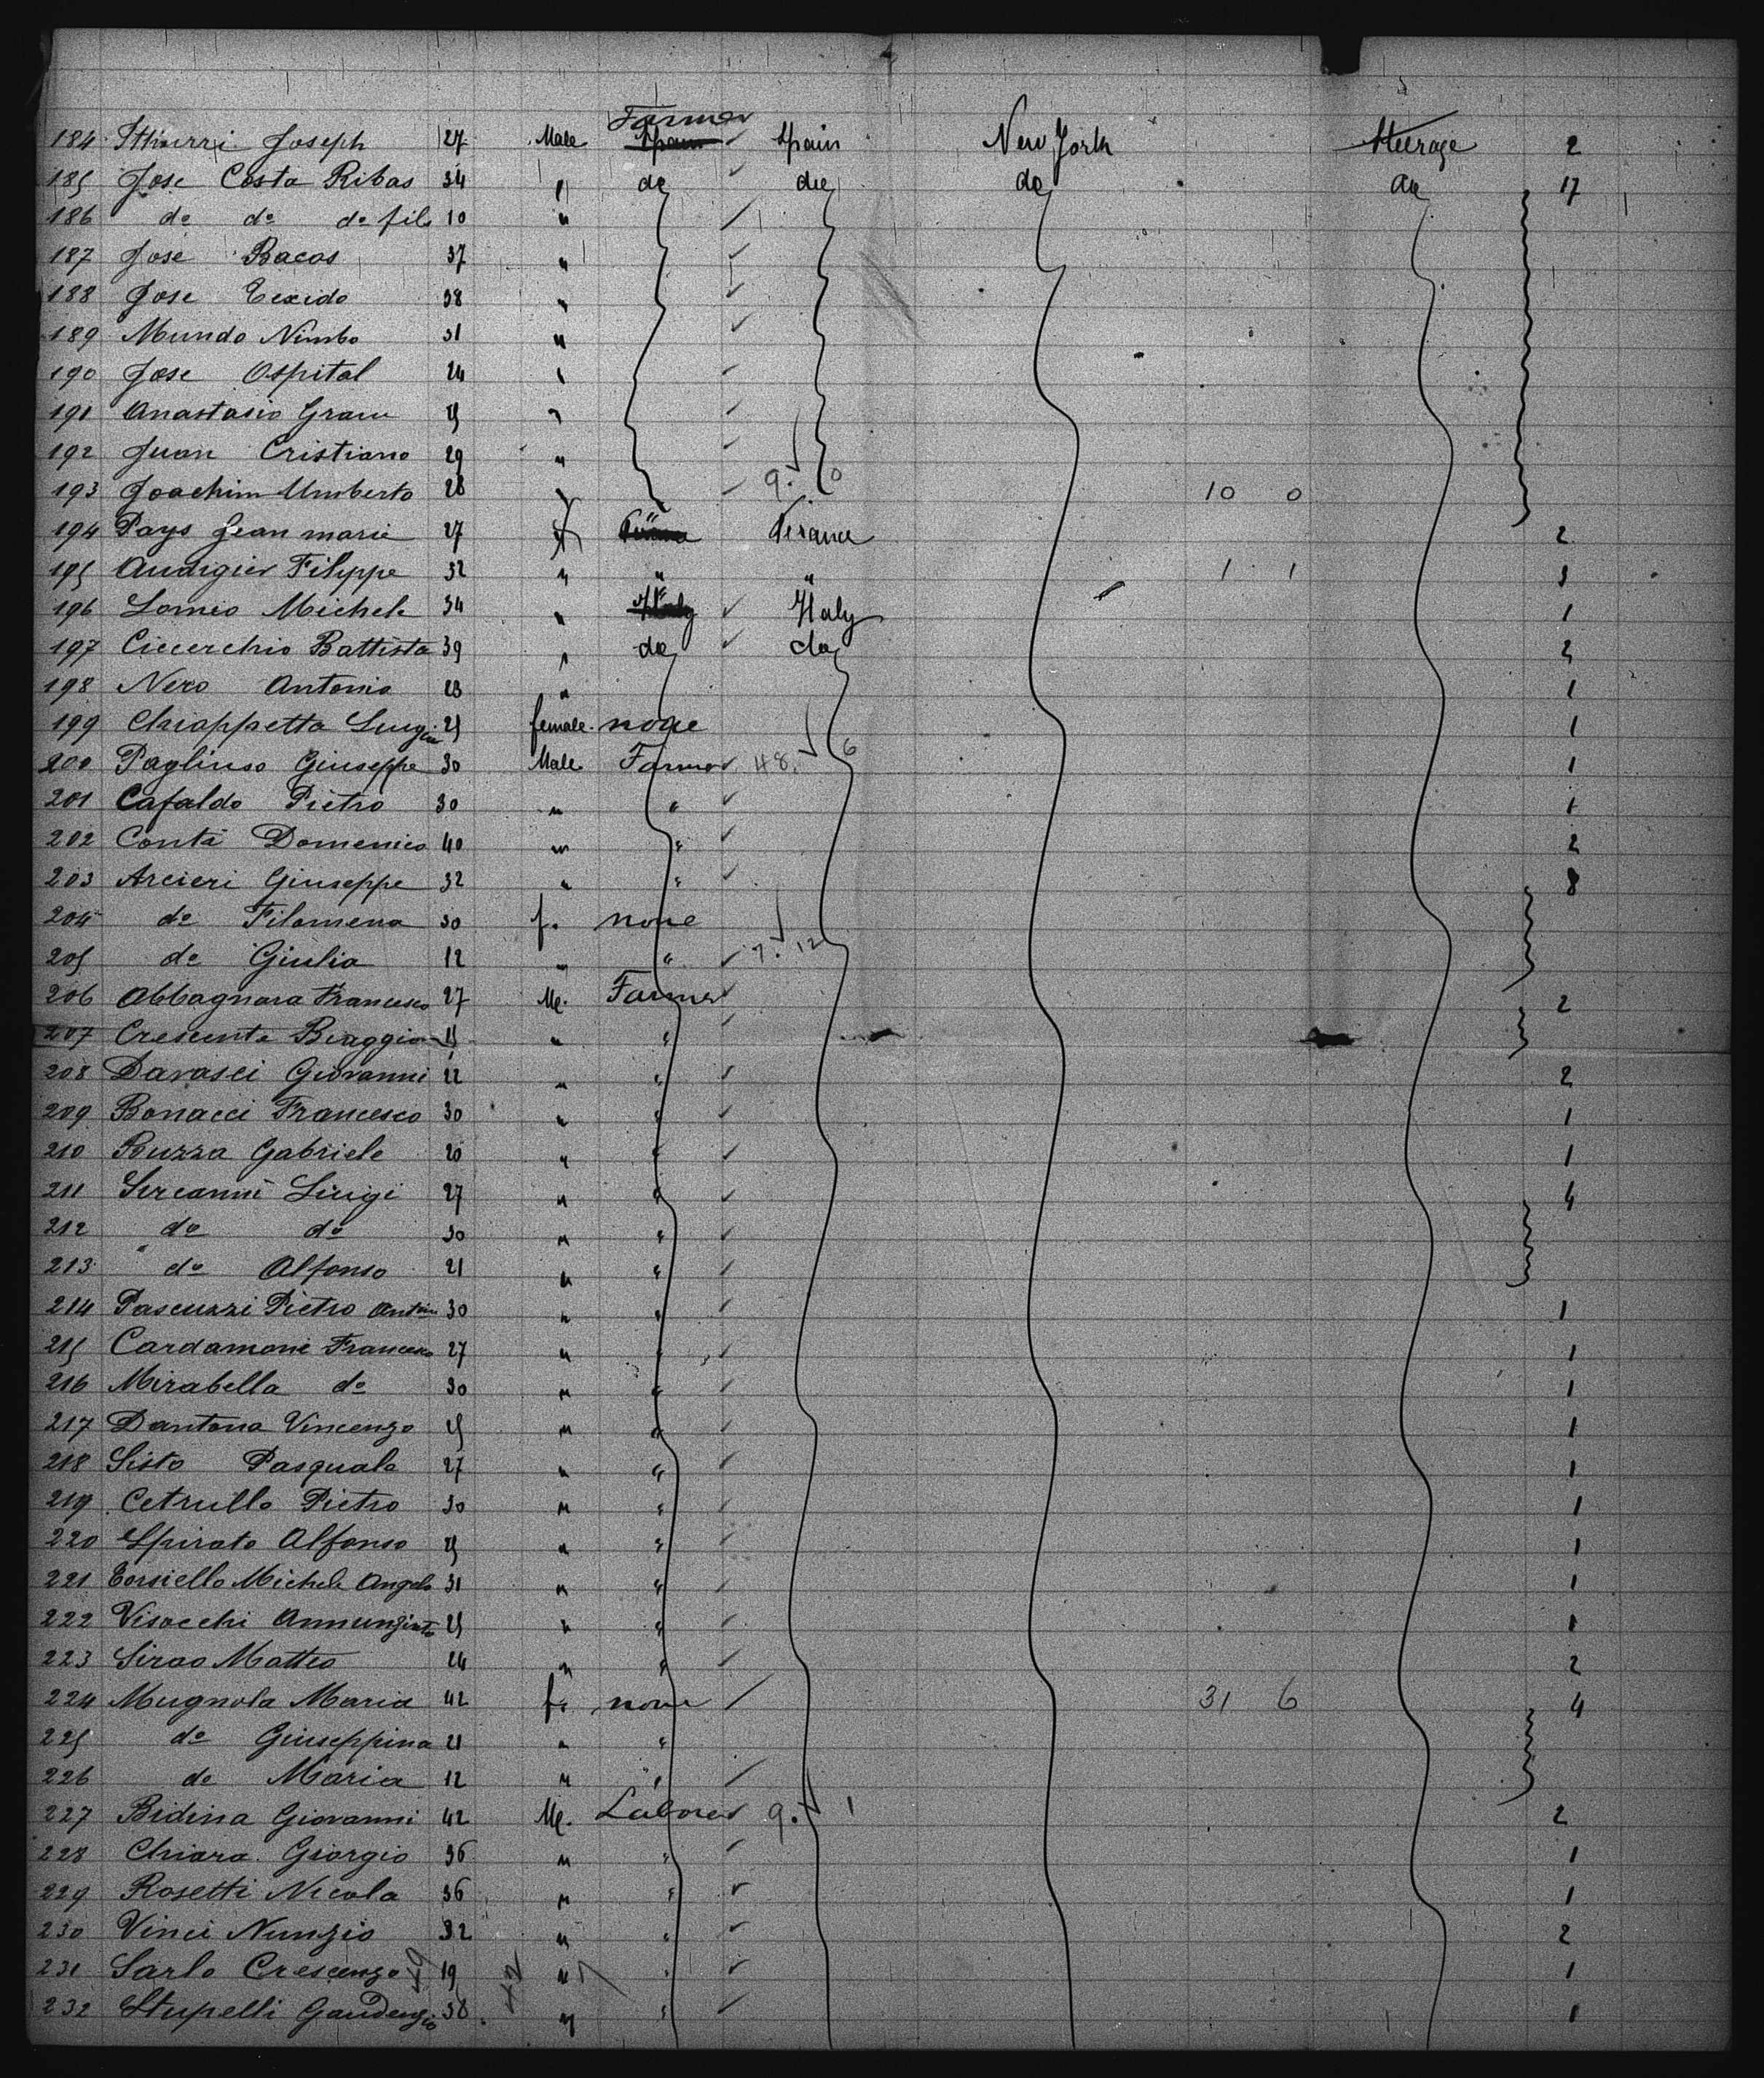 Farmer
184 Joseph 27 Male Spain Spain New York Steerage 2
185 Jose Costa Ribas 34 " do do do do 17
186 do do do fils 10 "
187 José Bacas 37 "
188 Jose Texido 38 "
189 Mundo Nimbo 31 "
190 Jose Ospital 24 "
191 Anastasio Grau 25 "
192 Juan Cristiano 29 "
193 Joachim Umberto 28 " 9. 0 10 0
194 Pays Jean marie 27 " " France 2
195 Audigier Filippe 32 " " " 1 1 3
196 Lomio Michele 34 " Italy Italy 1
197 Ciccerchio Battista 39 " do do 2
198 Nero Antonio 23 " 1
199 Chiappetta Luigia 25 female none 1
200 Pagliuso Giuseppe 30 Male Farmer 48. 6 1
201 Cafaldo Pietro 30 " " 1
202 Conti Domenico 40 " " 2
203 Arcieri Giuseppe 32 " " 8
204 do Filomena 30 f. none
205 do Giulia 12 " " 7. 12
206 Abbagnara Francesco 27 Me. Farmer 2
207 Crescente Biaggio 15 " "
208 Davasci Giovanni 22 " " 2
209 Bonacci Francesco 30 " " 1
210 Buzza Gabriele 20 " " 1
211 Sircanni Luigi 27 " " 4
212 do do 30 " "
213 do Alfonso 21 " "
214 Pascuzzi Pietro Anton 30 " " 1
215 Cardamone Francesco 27 " " 1
216 Mirabella do 30 " " 1
217 Dantona Vincenzo 25 " " 1
218 Sisto Pasquale 27 " " 1
219 Cetrullo Pietro 30 " " 1
220 Spirato Alfonso 25 " " 1
221 Torsiello Michele Angelo 31 " " 1
222 Visocchi Annunziato 25 " " 1
223 Sirao Matteo 24 " " 2
224 Mugnola Maria 42 f. none 31 6 4
225 do Giuseppina 21 " "
226 do Maria 12 " "
227 Bidina Giovanni 42 Me. Laborer 9. 1 2
228 Chiara Giorgio 36 " " 1
229 Rosetti Nicola 36 " " 1
230 Vinci Nunzio 32 " " 2
231 Sarlo Crescenzo 19 " " 1
232 Stupelli Gaudenzio 38 " " 1